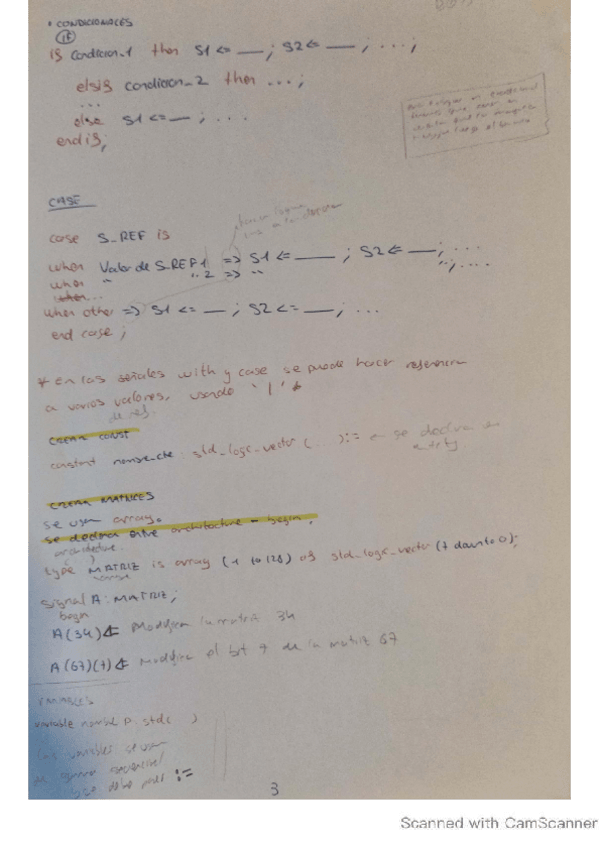 • CONDICIONALES
if
if condicion_1 then S1 <= __ ; S2 <= __ ; ...;
elsif condicion_2 then ...;
...
else S1 <= __ ; ...
end if;
CASE
case S_REF is
when Valor de S_REF 1 => S1 <= ____ ; S2 <= __ ; ...
when " " 2 => " " ; ....
when other => S1 <= __ ; S2 <= __ ; ...
end case;
* En las señales with y case se puede hacer referencia
a varios valores, usando '|'
de ref.
CREAR CONST
constant nombre_cte: std_logic_vector (...) := se declara en
entity
CREAR MATRICES
se usan array.
se declara entre architecture - begin.
architecture
type MATRIZ is array (1 to 128) of std_logic_vector (7 downto 0);
nombre
signal A: MATRIZ;
begin
A(34) <= Modifica la matriz 34
A(67)(7) <= Modifica el bit 7 de la matriz 67
VARIABLES
variable nombre : std( )
Las variables se usan
de secuencial
debe poner :=
3
Scanned with CamScanner